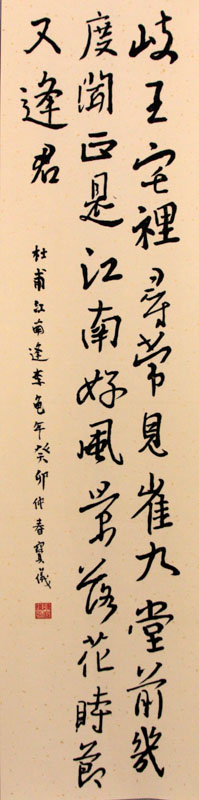 歧王宅裡尋常見崔九堂前幾
度聞正是江南好風景落花時節
又逢君
杜甫江南逢李龜年癸卯仲春寶儀